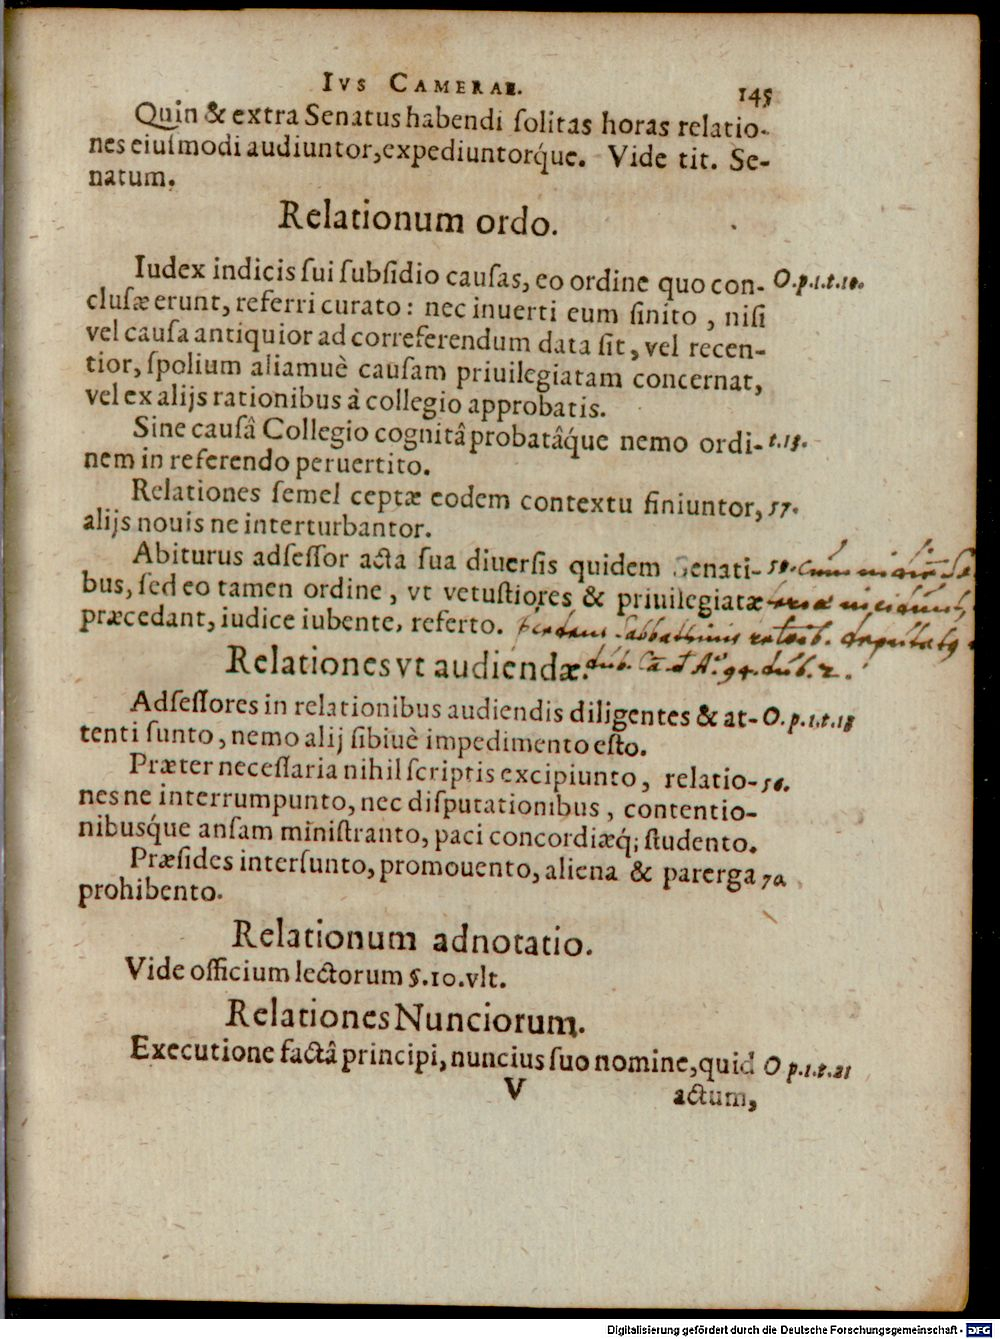 IVS CAMERAE. 145
Quin & extra Senatus habendi ſolitas horas relatio-
nes eiuſmodi audiuntor, expediuntorq́ue. Vide tit. Se-
natum.
Relationum ordo.
Iudex indicis ſui ſubſidio cauſas, eo ordine quo con- O.p.1.t.10.
cluſæ erunt, referri curato: nec inuerti eum ſinito, niſi
vel cauſa antiquior ad correferendum data ſit, vel recen-
tior, ſpolium aliamuè cauſam priuilegiatam concernat,
vel ex alijs rationibus à collegio approbatis.
Sine cauſâ Collegio cognitâ probatâq́ue nemo ordi- t.13.
nem in referendo peruertito.
Relationes ſemel ceptæ eodem contextu finiuntor, 57.
alijs nouis ne interturbantor.
Abiturus adſeſſor acta ſua diuerſis quidem Senati- 58. Cum
bus, ſed eo tamen ordine, vt vetuſtiores & priuilegiatæ incidunt
præcedant, iudice iubente, referto. Sabbathinis deputat
Relationes vt audiendæ. dub. 94. dub. 2.
Adſeſſores in relationibus audiendis diligentes & at- O.p.1.t.13
tenti ſunto, nemo alij ſibiuè impedimento eſto.
Præter neceſſaria nihil ſcriptis excipiunto, relatio- 56.
nes ne interrumpunto, nec diſputationibus, contentio-
nibusq́ue anſam miniſtranto, paci concordiæq́; ſtudento.
Præſides interſunto, promouento, aliena & parerga 70
prohibento.
Relationum adnotatio.
Vide officium lectorum §.10.vlt.
Relationes Nunciorum.
Executione factâ principi, nuncius ſuo nomine, quid O p.1.t.21
V actum,
Digitalisierung gefördert durch die Deutsche Forschungsgemeinschaft - DFG